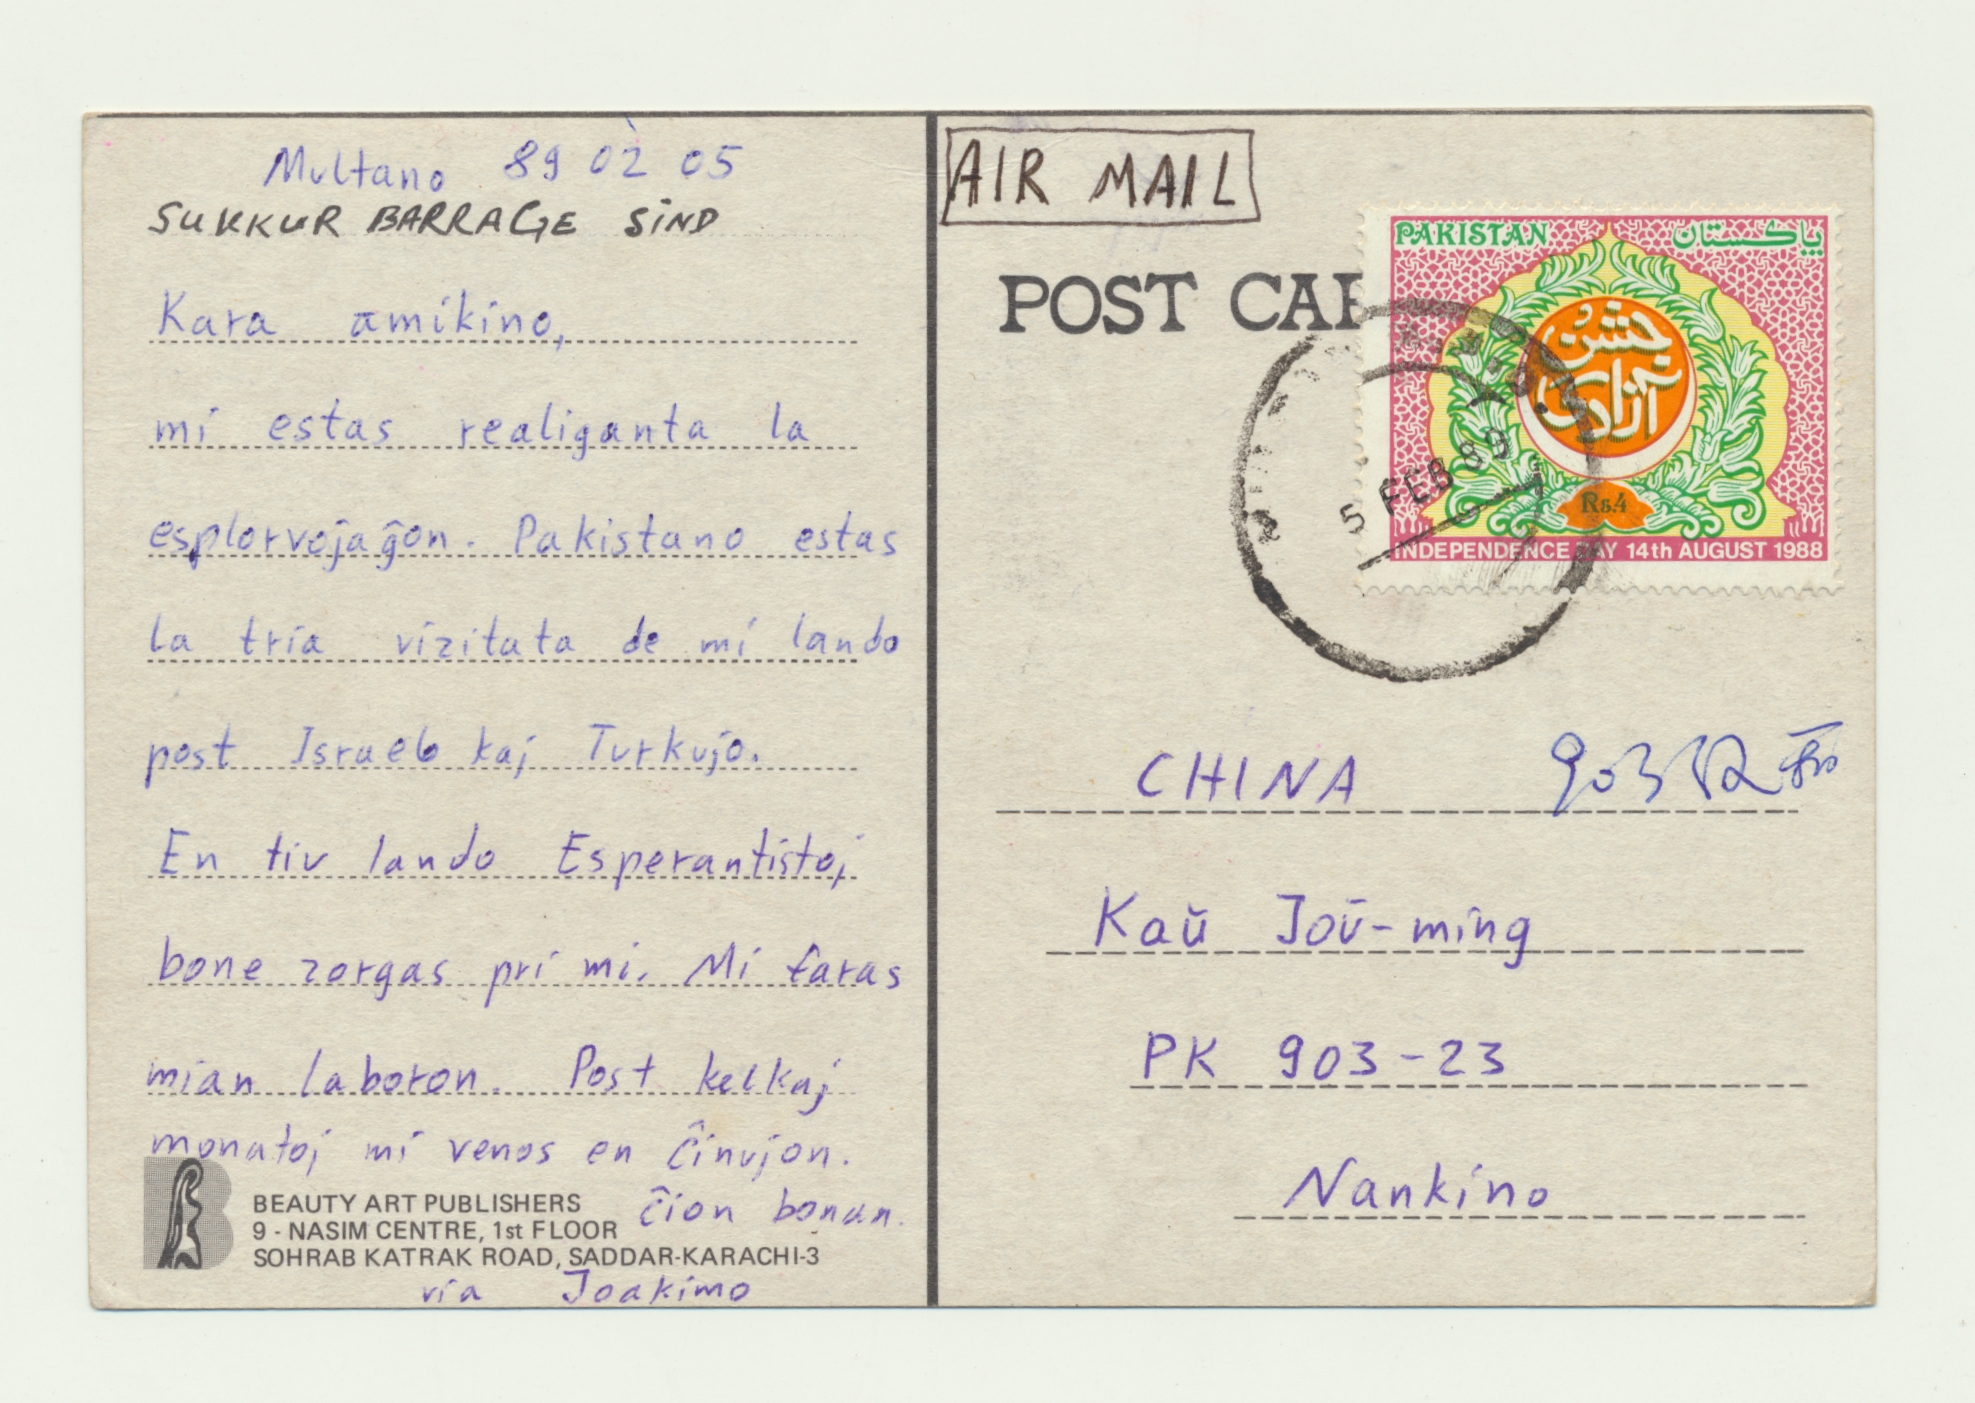 Multano 89 02 05
SUKKUR BARRAGE SIND
Kara amikino,
mi estas realiganta la
esplorvojaĝon. Pakistano estas
la tria vizitata de mi lando
post Israelo kaj Turkujo.
En tiu lando Esperantistoj
bone zorgas pri mi. Mi faras
mian laboron. Post kelkaj
monatoj mi venos en Ĉinujon.
Ĉion bonan.
BEAUTY ART PUBLISHERS
9 - NASIM CENTRE, 1st FLOOR
SOHRAB KATRAK ROAD, SADDAR-KARACHI-3
via Joakimo
AIR MAIL
POST CAR
PAKISTAN پاکستان
جشن
آزادی
Rs.4
INDEPENDENCE DAY 14th AUGUST 1988
5 FEB 89
CHINA 903
Kaŭ Joŭ-ming
PK 903-23
Nankino